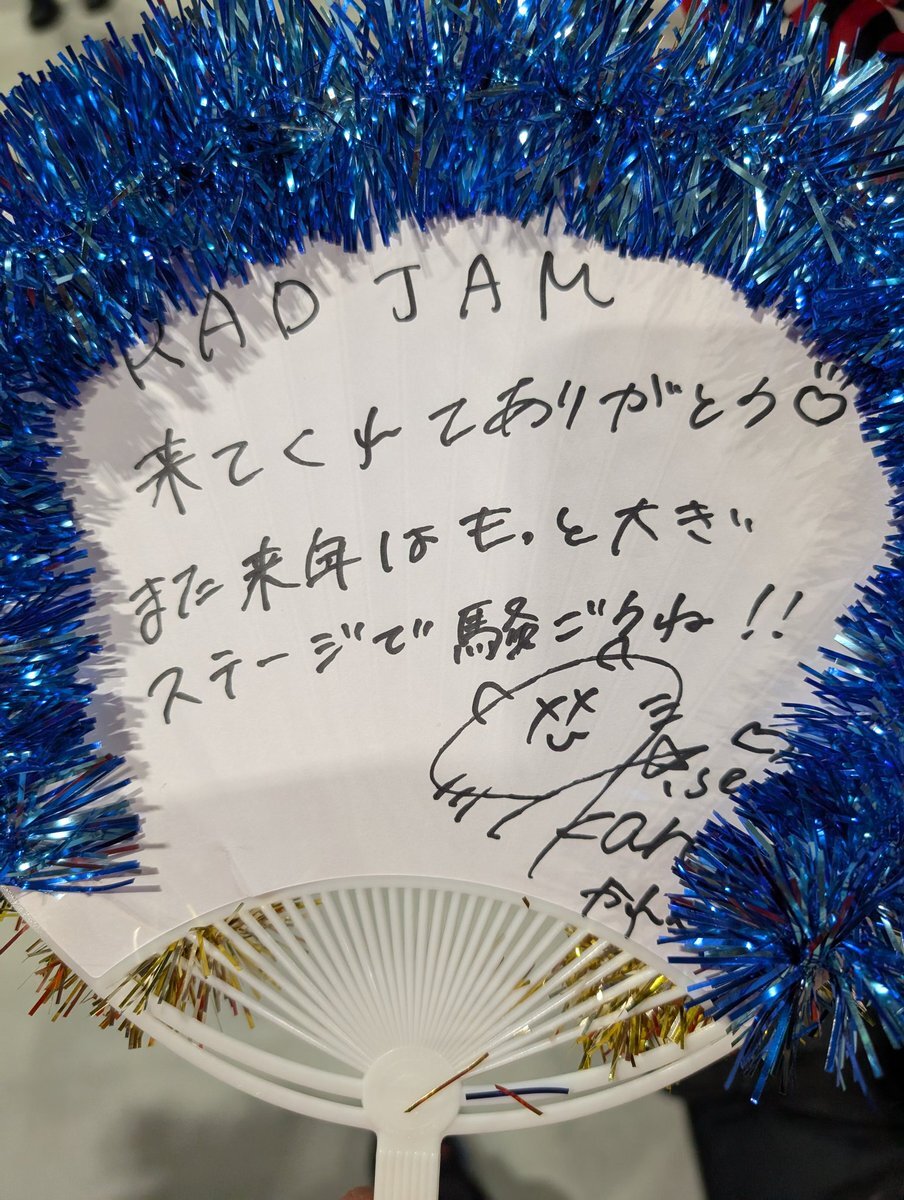 KAD JAM
来てくれてありがとう♡
また来年はもっと大きい
ステージで騒ごうね!!